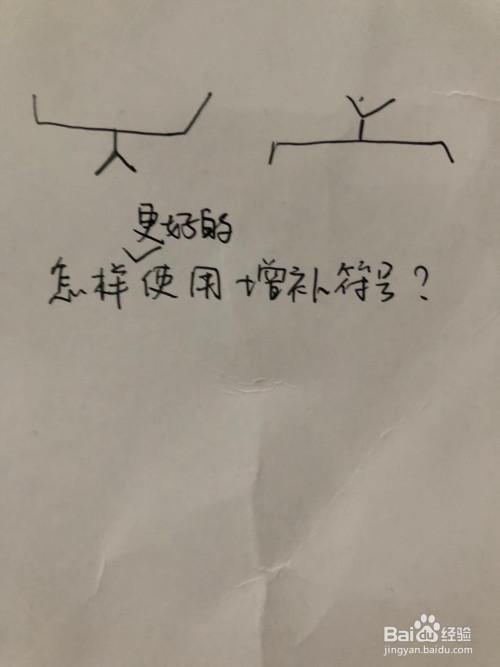 更好的
怎样使用增补符号?
Baidu经验
jingyan.baidu.com